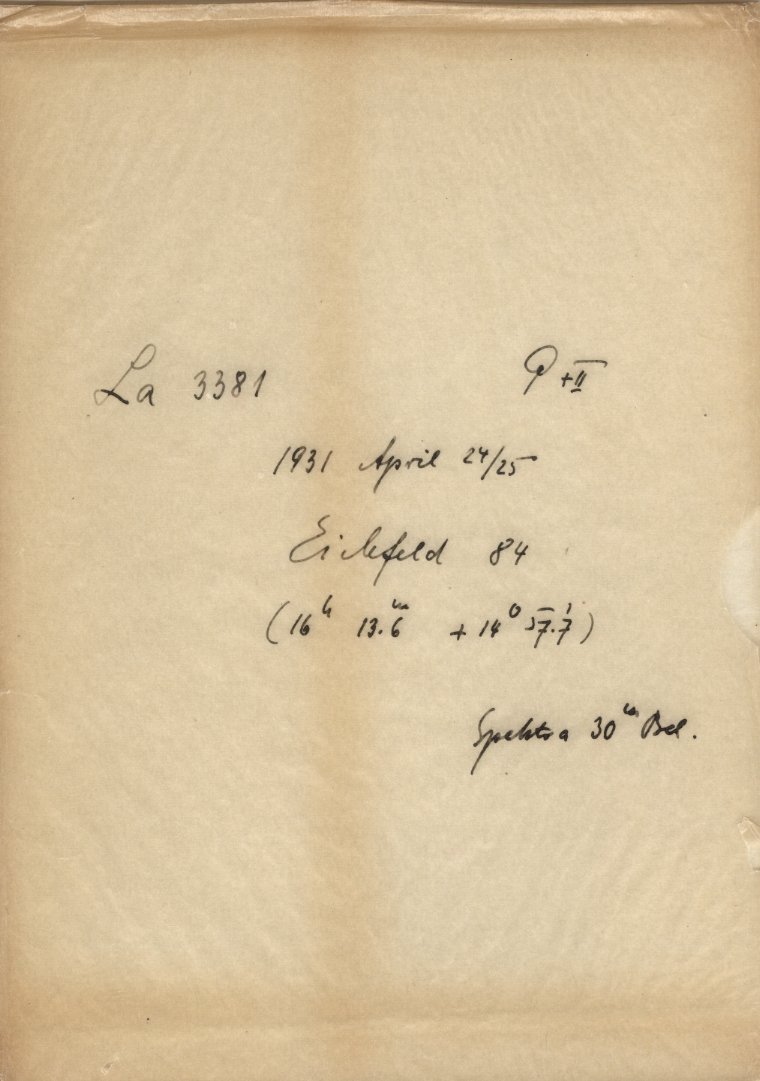 La 3381 P + II
1931 April 24/25
Eichfeld 84
(16ʰ 13.6ᵐ + 14° 57.7')
Spektra 30ᵐ Bel.